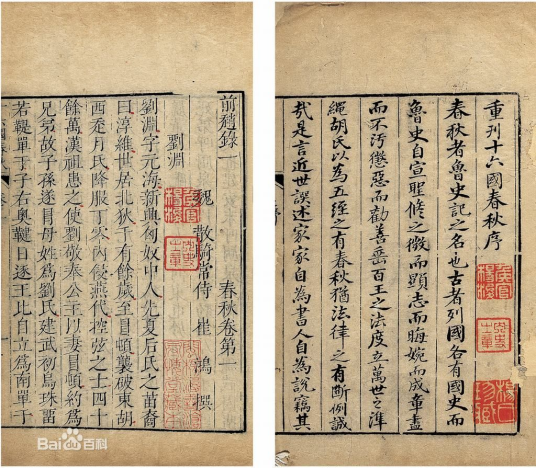 重刊十六國春秋序
春秋者魯史記之名也古者列國各有國史而
魯史自宣聖脩之微而顯志而晦婉而成章盡
而不汚懲惡而勸善垂百王之法度立萬世之準
繩胡氏以為五經之有春秋猶法律之有斷例誠
哉是言近世述家家自為書人自為說竊其
前趙錄一 春秋卷第一
魏 散騎常侍 崔 鴻 撰
劉淵
劉淵字元海新興匈奴中人先夏后氏之苗裔
曰淳維世居北狄千有餘歲至冒頓襲破東胡
西走月氏降服丁零內侵燕代控弦之士四十
餘萬漢祖患之使劉敬奉公主以妻冒頓約爲
兄弟故子孫遂冒母姓爲劉氏建武初烏珠留
若鞮單于子右奧鞬日逐王比自立爲南單于
Bai百科